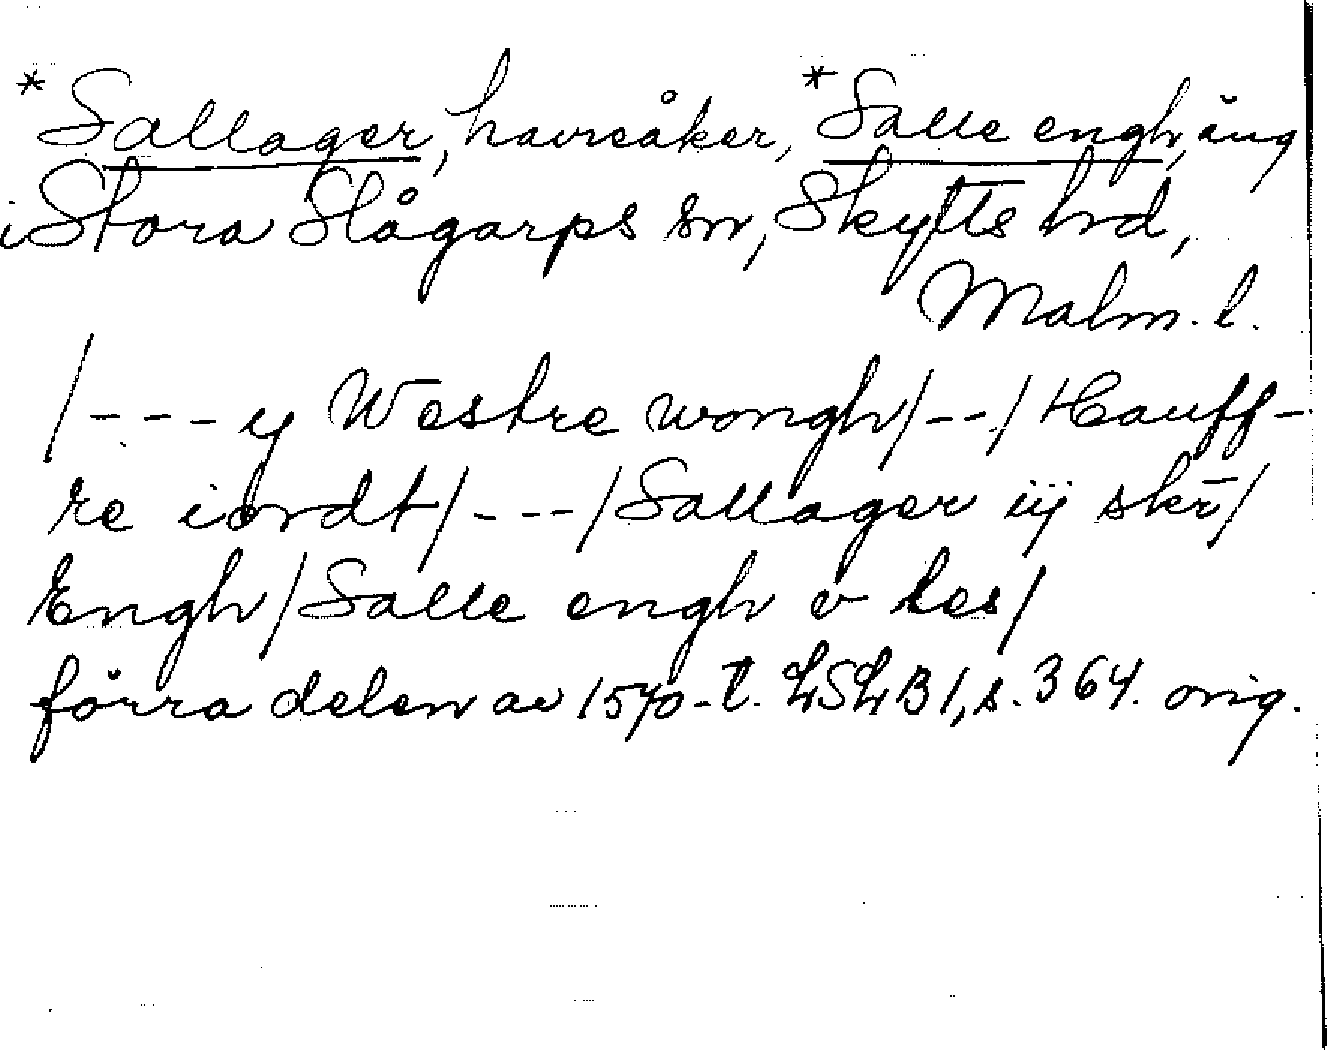 *Sallager, havreåker, *Salle engh, äng
i Stora Slågarps sn, Skytts hrd,
Malm. l.
/---y Westre wongh/--/Hauff-
re iordt/---/Sallager iij skr̄/
Engh/Salle engh v les/
förra delen av 1570-t. LSLB 1, s. 364. orig.